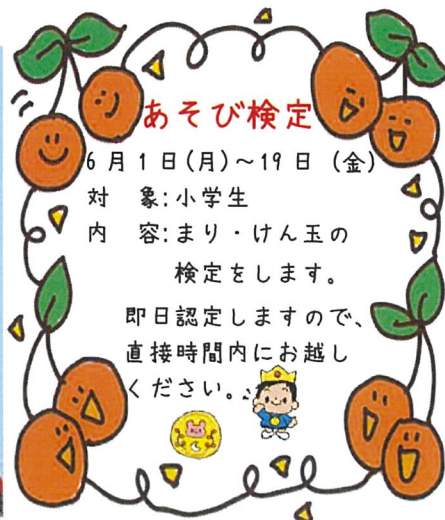 あそび検定
6月1日(月)～19日(金)
対　象:小学生
内　容:まり・けん玉の
検定をします。
即日認定しますので、
直接時間内にお越し
ください。